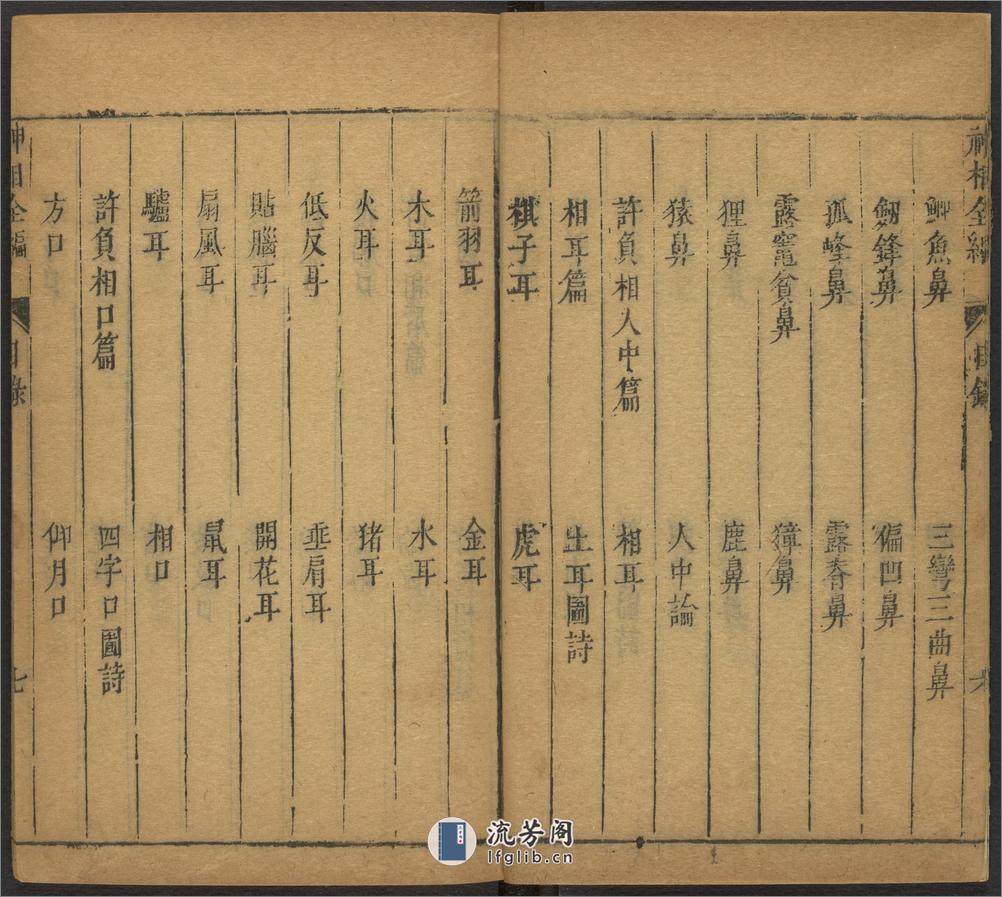 神相全編 目錄 六
鯽魚鼻 三彎三曲鼻
劒鋒鼻 偏凹鼻
孤峰鼻 露脊鼻
露竈貧鼻 獐鼻
狸鼻 鹿鼻
猿鼻 人中論
許負相人中篇 相耳
相耳篇 土耳圖詩
棋子耳 虎耳
箭羽耳 金耳
木耳 水耳
火耳 猪耳
低反耳 垂肩耳
貼腦耳 開花耳
扇風耳 鼠耳
驢耳 相口
許負相口篇 四字口圖詩
方口 仰月口
神相全編 目錄 七
流芳阁
lfglib.cn